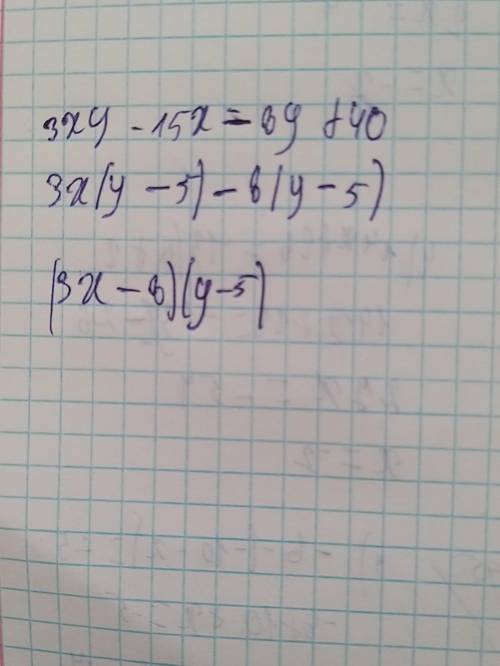 3xy - 15x - 8y + 40
3x(y - 5) - 8(y - 5)
(3x - 8)(y - 5)
x = -2